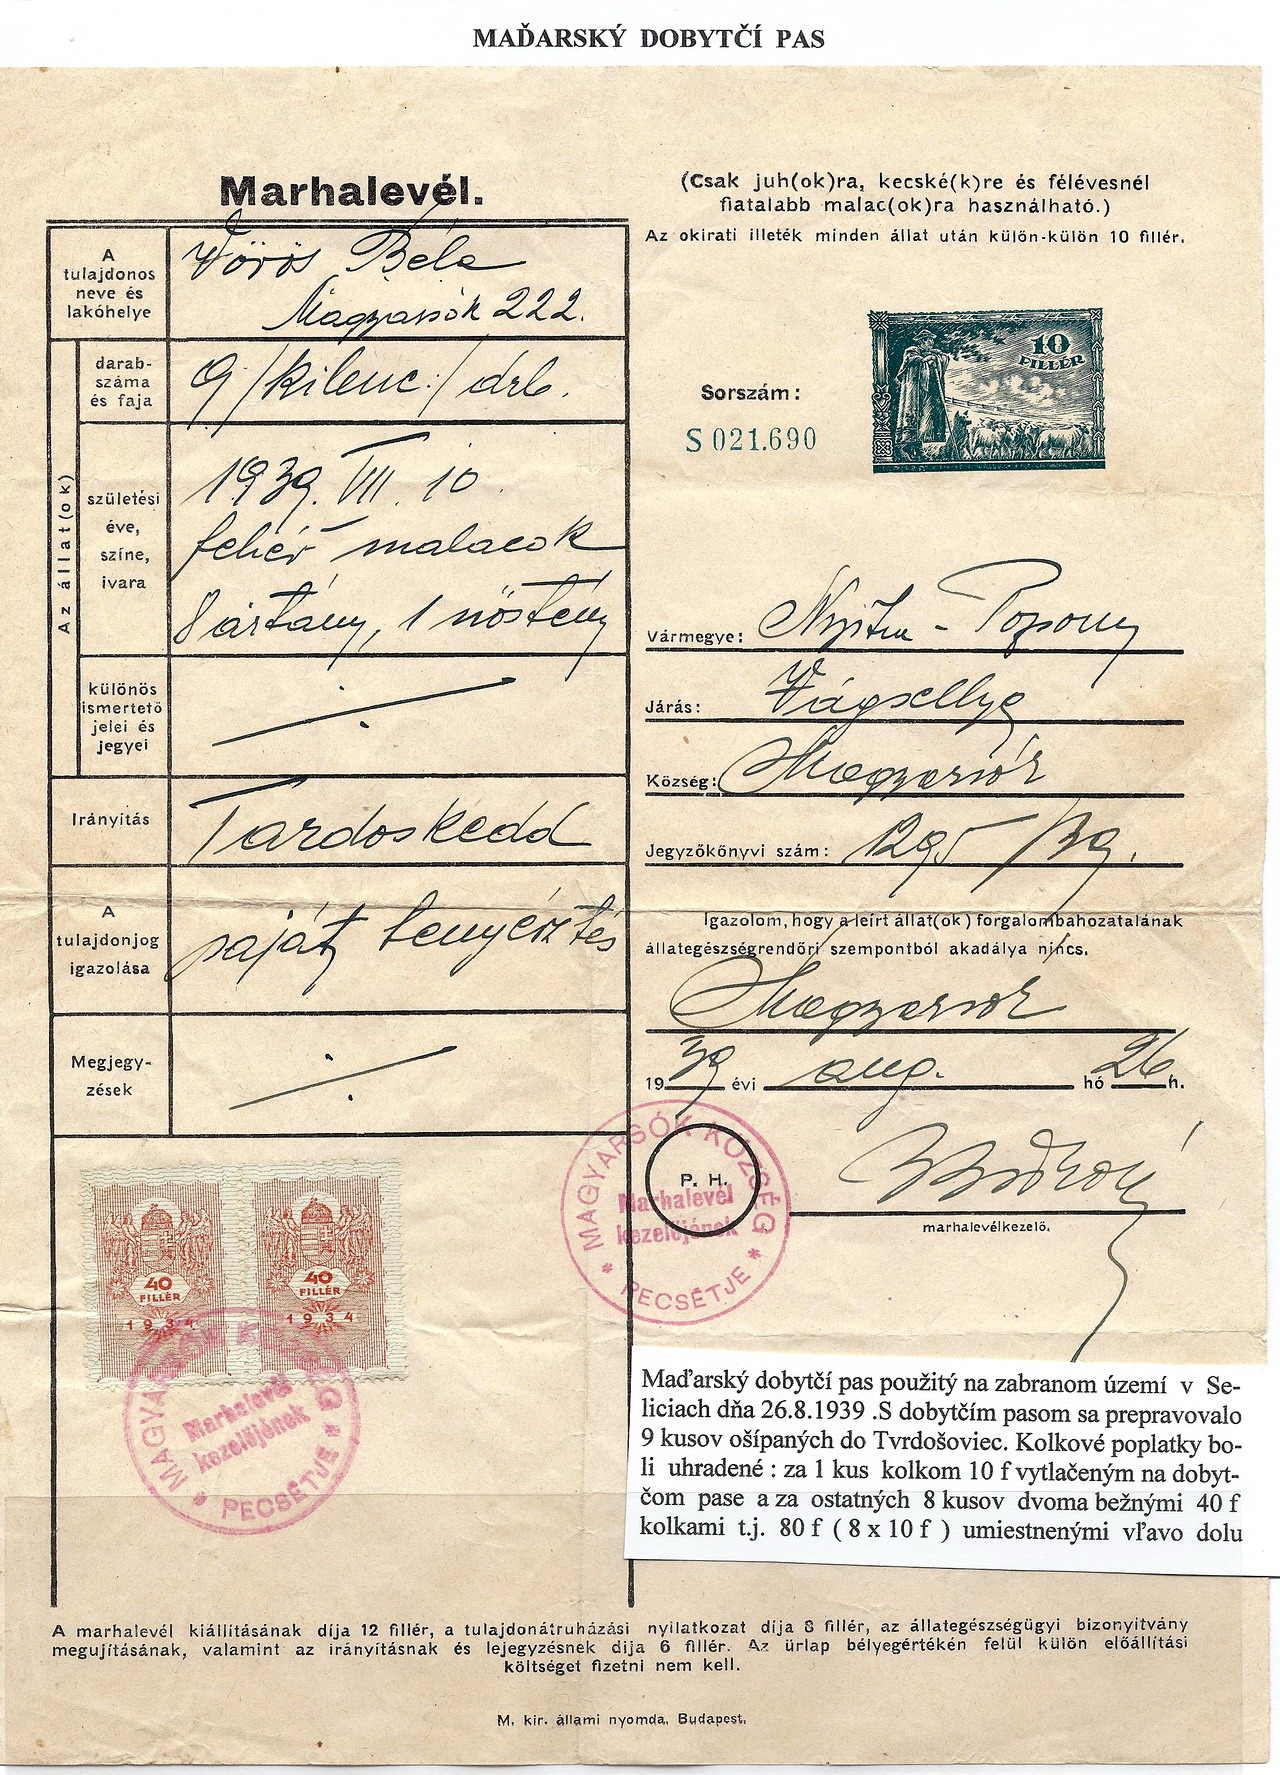 MAĎARSKÝ DOBYTČÍ PAS
Marhalevél.
A
tulajdonos
neve és
lakóhelye
Vörös Béla
Magyarsók 222.
Az állat(ok)
darab-
száma
és faja
9 /kilenc:/ drb.
születési
éve,
színe,
ivara
1939. VIII. 10
fehér malacok
8 ártány, 1 nőstény
különös
ismertető
jelei és
jegyei
Irányítás
Tardoskedd
A
tulajdonjog
igazolása
saját tenyésztés
Megjegy-
zések
40
FILLÉR
1934
40
FILLÉR
1934
MAGYARSÓK KÖZSÉG
Marhalevél
kezelőjének
* PECSÉTJE *
(Csak juh(ok)ra, kecské(k)re és félévesnél
fiatalabb malac(ok)ra használható.)
Az okirati illeték minden állat után külön-külön 10 fillér.
10
FILLÉR
Sorszám:
S 021.690
Vármegye: Nyitra - Pozsony
Járás: Vágsellye
Község: Magyarsók
Jegyzőkönyvi szám: 1295/39.
Igazolom, hogy a leírt állat(ok) forgalombahozatalának
állategészségrendőri szempontból akadálya nincs.
Magyarsók
1939 évi aug. hó 26 h.
MAGYARSÓK KÖZSÉG
P. H.
Marhalevél
kezelőjének
* PECSÉTJE *
marhalevélkezelő.
Maďarský dobytčí pas použitý na zabranom území v Se-
liciach dňa 26.8.1939 .S dobytčím pasom sa prepravovalo
9 kusov ošípaných do Tvrdošoviec. Kolkové poplatky bo-
li uhradené : za 1 kus kolkom 10 f vytlačeným na dobyt-
čom pase a za ostatných 8 kusov dvoma bežnými 40 f
kolkami t.j. 80 f ( 8 x 10 f ) umiestnenými vľavo dolu
A marhalevél kiállításának díja 12 fillér, a tulajdonátruházási nyilatkozat díja 8 fillér, az állategészségügyi bizonyitvány
megujításának, valamint az irányításnak és lejegyzésnek dija 6 fillér. Az ürlap bélyegértékén felül külön előállítási
költséget fizetni nem kell.
M. kir. állami nyomda, Budapest.